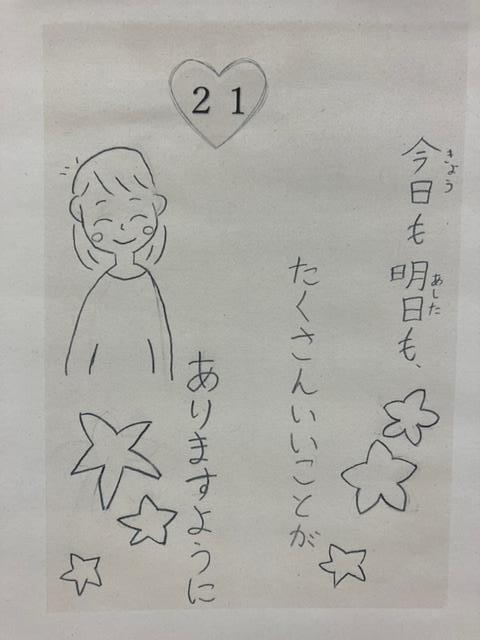 21
今日も明日も、
きょう
あした
たくさんいいことが
ありますように